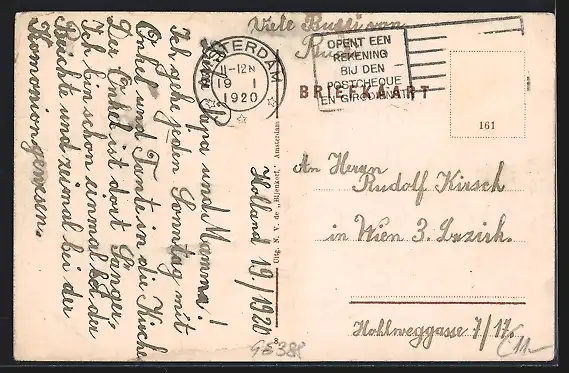 Viele Bussi von
Rudi
AMSTERDAM
11-12N
19 I
1920
OPENT EEN
REKENING
BIJ DEN
POSTCHEQUE
EN GIRODIENST
BRIEFKAART
161
Holland 19/1920
Papa und Mamma!
Ich gehe jeden Sonntag mit
Onkel und Tant in die Kirche
Der Onkel ist dort Sänger.
Ich bin schon einmal bei der
Beichte und zeimal bei der
Komoniongewesen.
Uitg. N. V. de „Bijenkorf," Amsterdam
8
An Herrn
Rudolf Kirsch
in Wien 3. Bezirk.
Hohlweggasse 7/17.